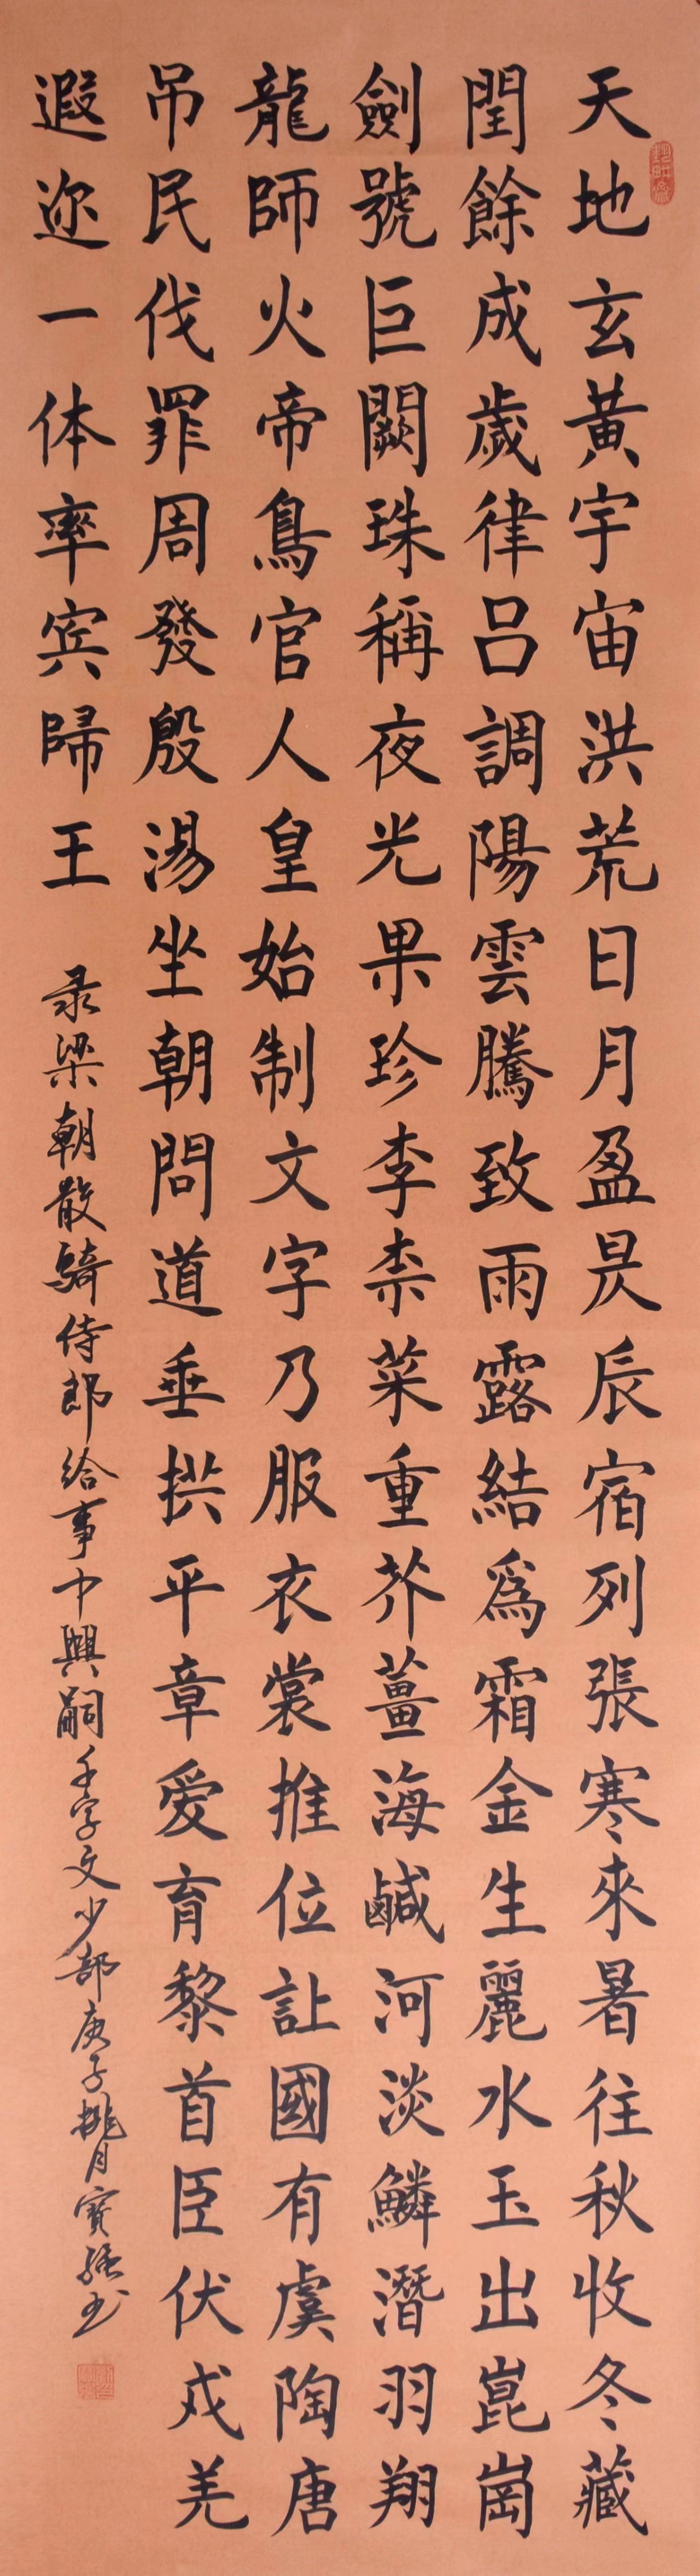 天地玄黃宇宙洪荒日月盈昃辰宿列張寒來暑往秋收冬藏
閏餘成歲律呂調陽雲騰致雨露結爲霜金生麗水玉出崑崗
劍號巨闕珠稱夜光果珍李柰菜重芥薑海鹹河淡鱗潛羽翔
龍師火帝鳥官人皇始制文字乃服衣裳推位讣國有虞陶唐
吊民伐罪周發殷湯坐朝問道垂拱平章愛育黎首臣伏戎羌
遐迩一体率宾歸王 录梁朝散騎侍郎給事中興嗣千字文少部庚子桃月寶强书